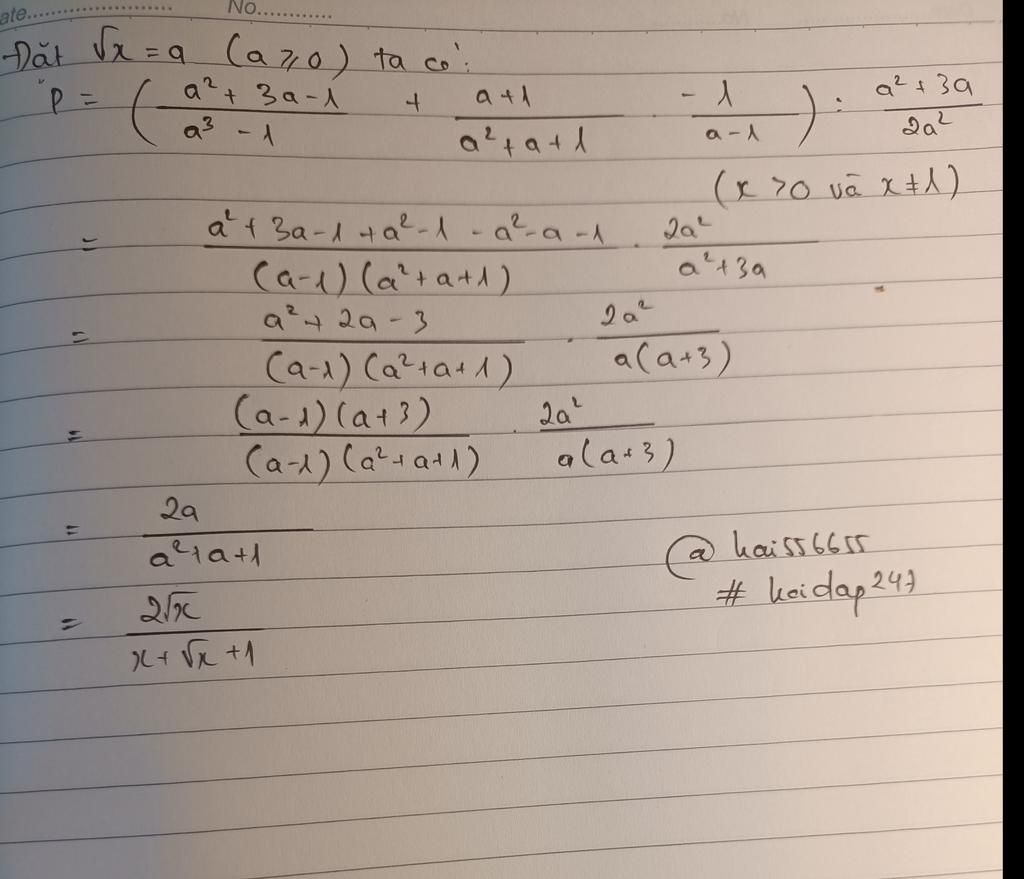 ate.......................... No............
Đặt √x = a (a ≥ 0) ta có:
P = ( (a² + 3a - 1)/(a³ - 1) + (a + 1)/(a² + a + 1) - 1/(a - 1) ) : (a² + 3a)/(2a²)
(x > 0 và x ≠ 1)
= (a² + 3a - 1 + a² - 1 - a² - a - 1)/((a-1)(a² + a + 1)) . 2a²/(a² + 3a)
= (a² + 2a - 3)/((a-1)(a² + a + 1)) . 2a²/(a(a+3))
= ((a-1)(a+3))/((a-1)(a² + a + 1)) . 2a²/(a(a+3))
= 2a/(a² + a + 1)
@ hai556655
# hoidap247
= 2√x/(x + √x + 1)